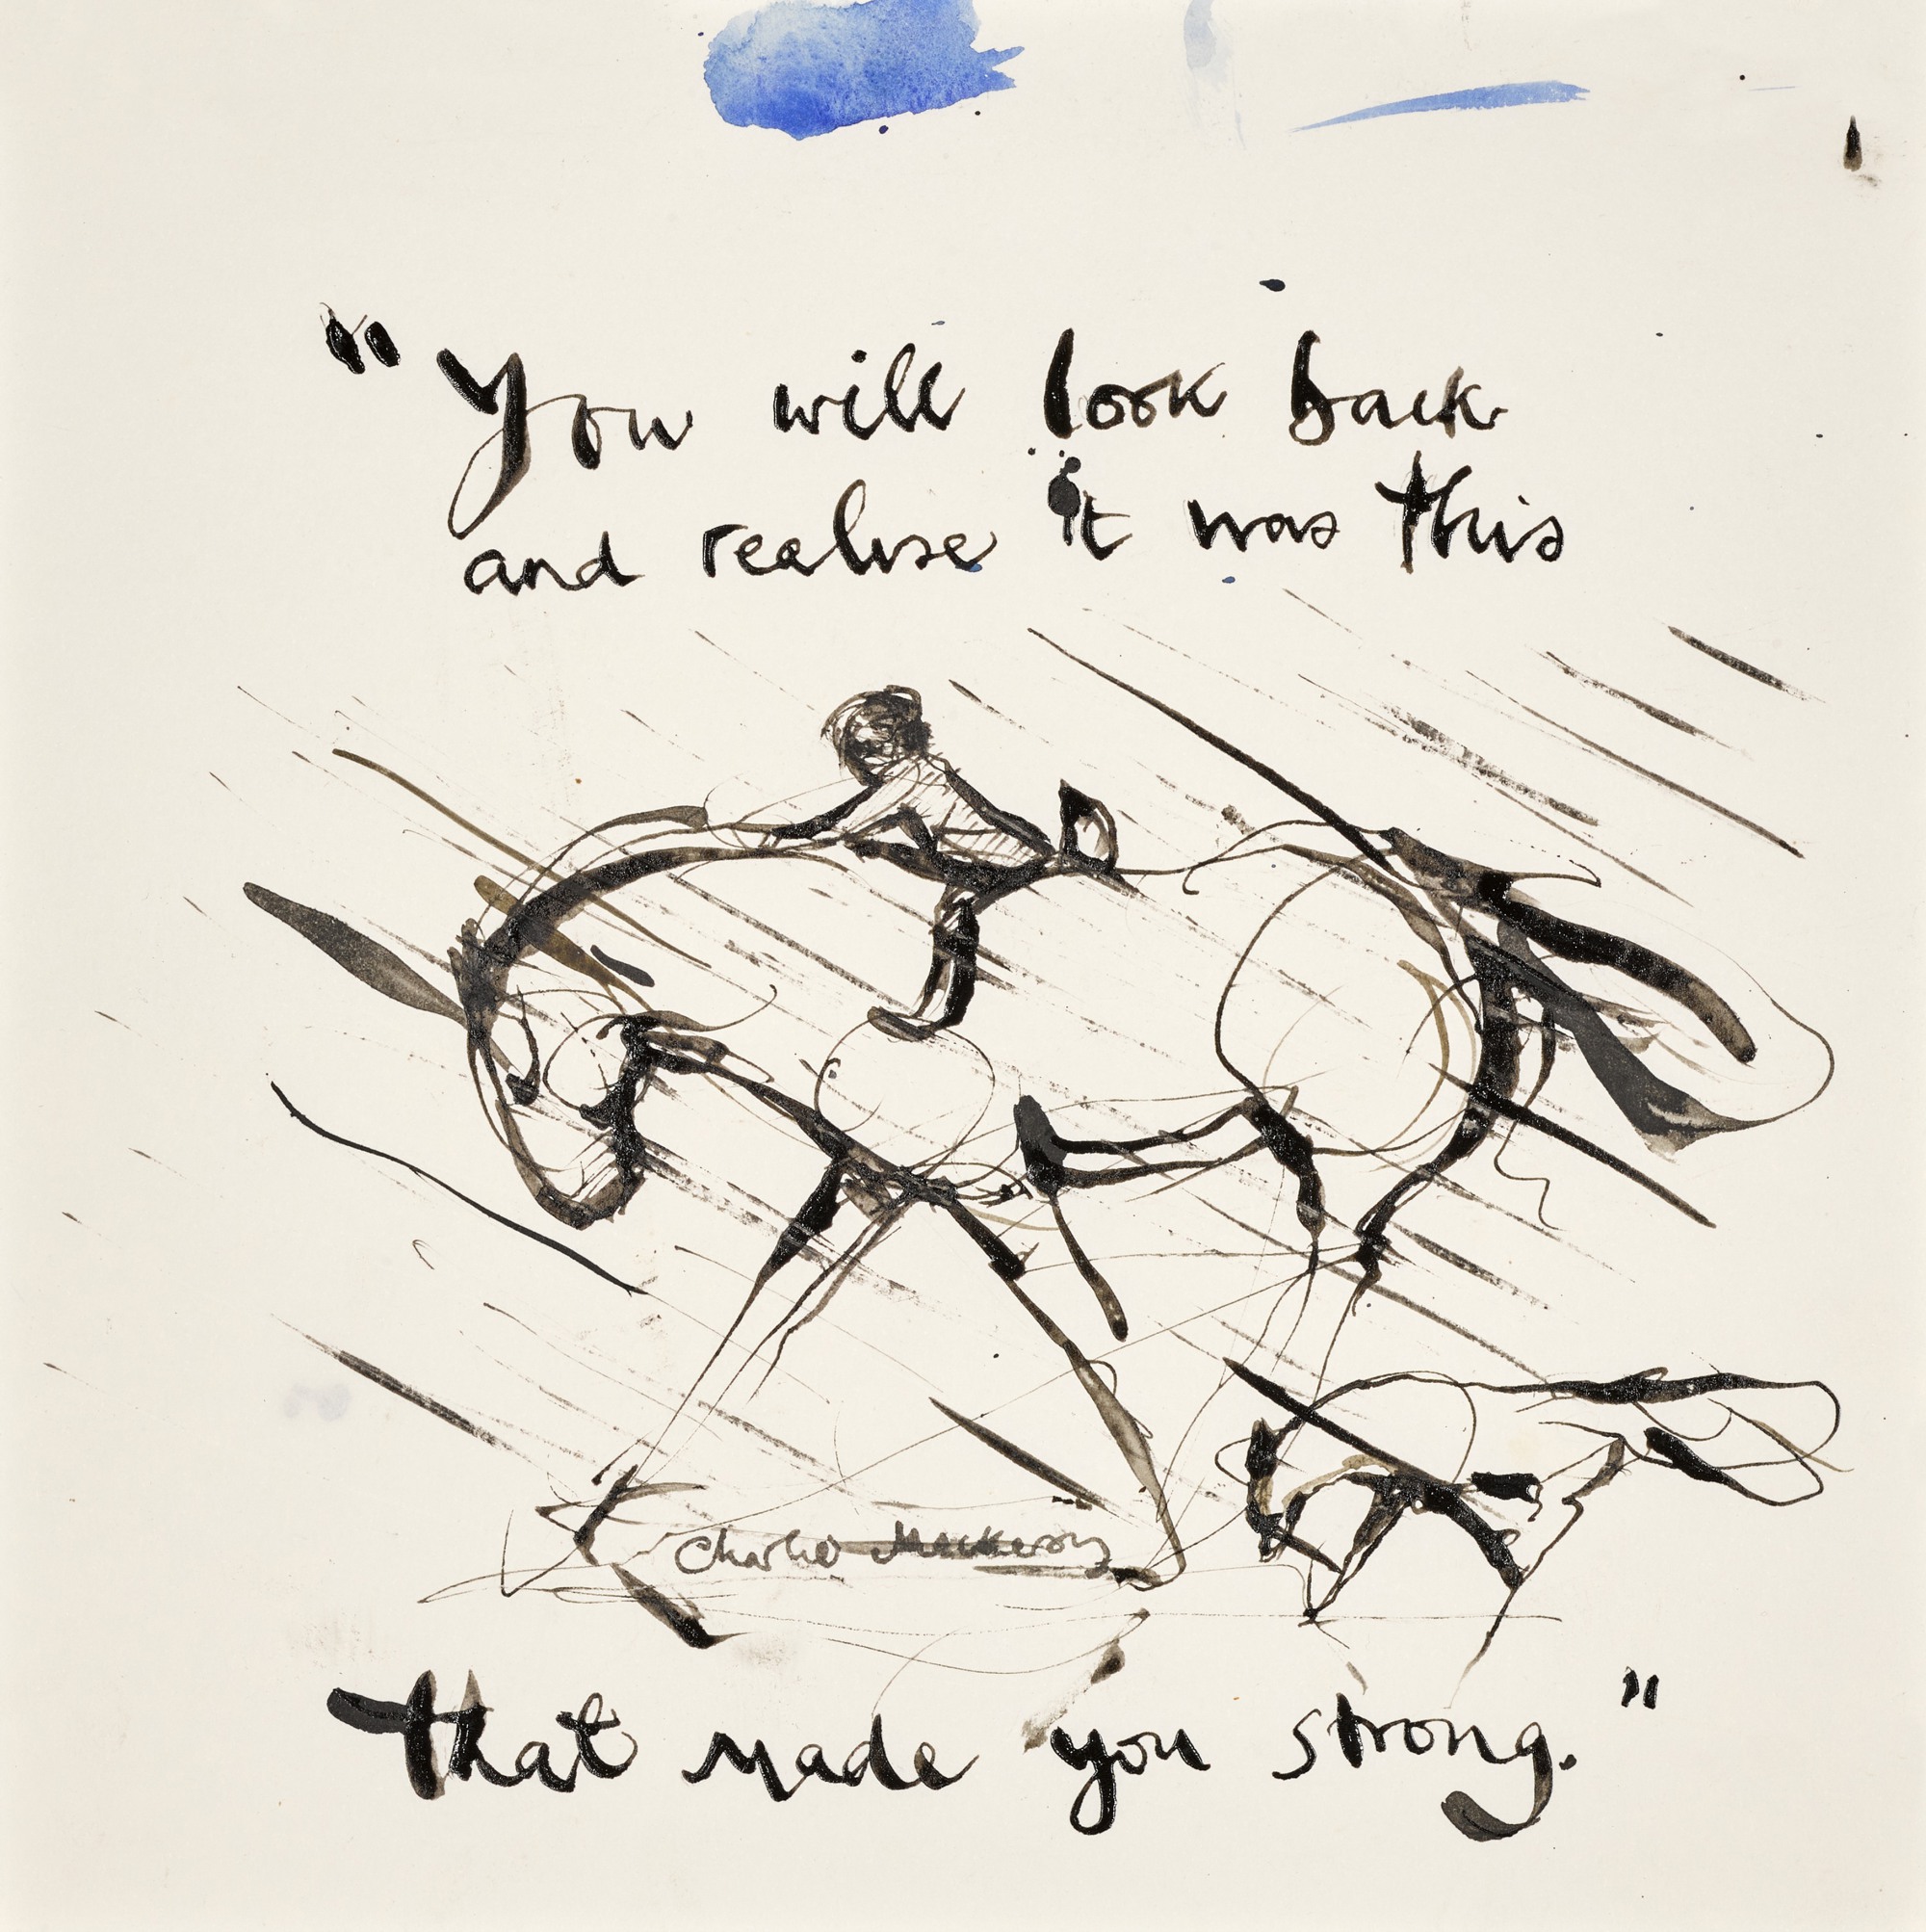 "You will look back
and realise it was this
Charlie Mackesy
that made you strong."